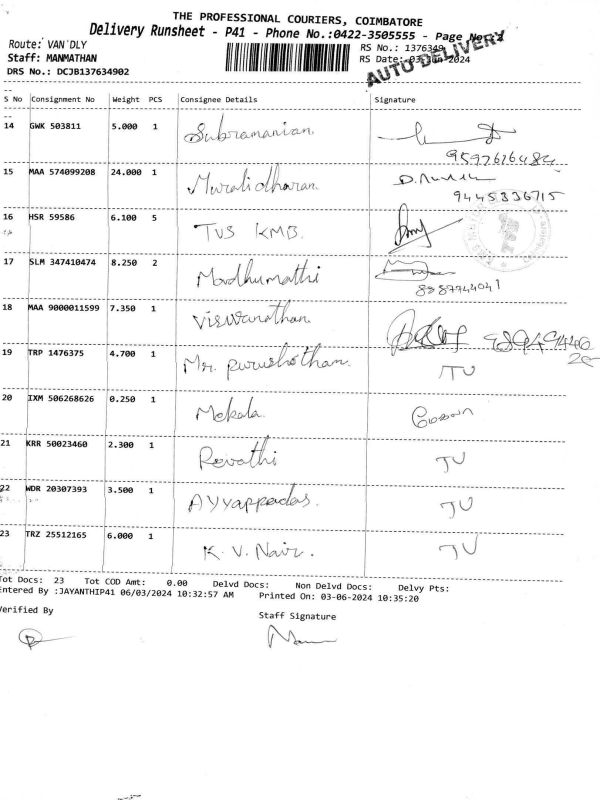 THE PROFESSIONAL COURIERS, COIMBATORE
Delivery Runsheet - P41 - Phone No.:0422-3505555 - Page No:2
Route: VAN DLY
RS No.: 1376349
Staff: MANMATHAN
RS Date: 03-Jun-2024
AUTO DELIVERY
DRS No.: DCJB137634902
S No Consignment No Weight PCS Consignee Details Signature
14 GWK 503811 5.000 1 Subramanian
15 MAA 574099208 24.000 1 Muralidharan. D.
9445336715
16 HSR 59586 6.100 5 TVS KMB.
17 SLM 347410474 8.250 2 Madhumathi
8887744041
18 MAA 9000011599 7.350 1 Viswanathan.
19 TRP 1476375 4.700 1 Mr. Purushothan. TU
20 IXM 506268626 0.250 1 Mekala. மேகலா
21 KRR 50023460 2.300 1 Revathi TU
22 WDR 20307393 3.500 1 Ayyappadas. TU
23 TRZ 25512165 6.000 1 K. V. Nair. TU
Tot Docs: 23 Tot COD Amt: 0.00 Delvd Docs: Non Delvd Docs: Delvy Pts:
Entered By :JAYANTHIP41 06/03/2024 10:32:57 AM Printed On: 03-06-2024 10:35:20
Verified By
Staff Signature